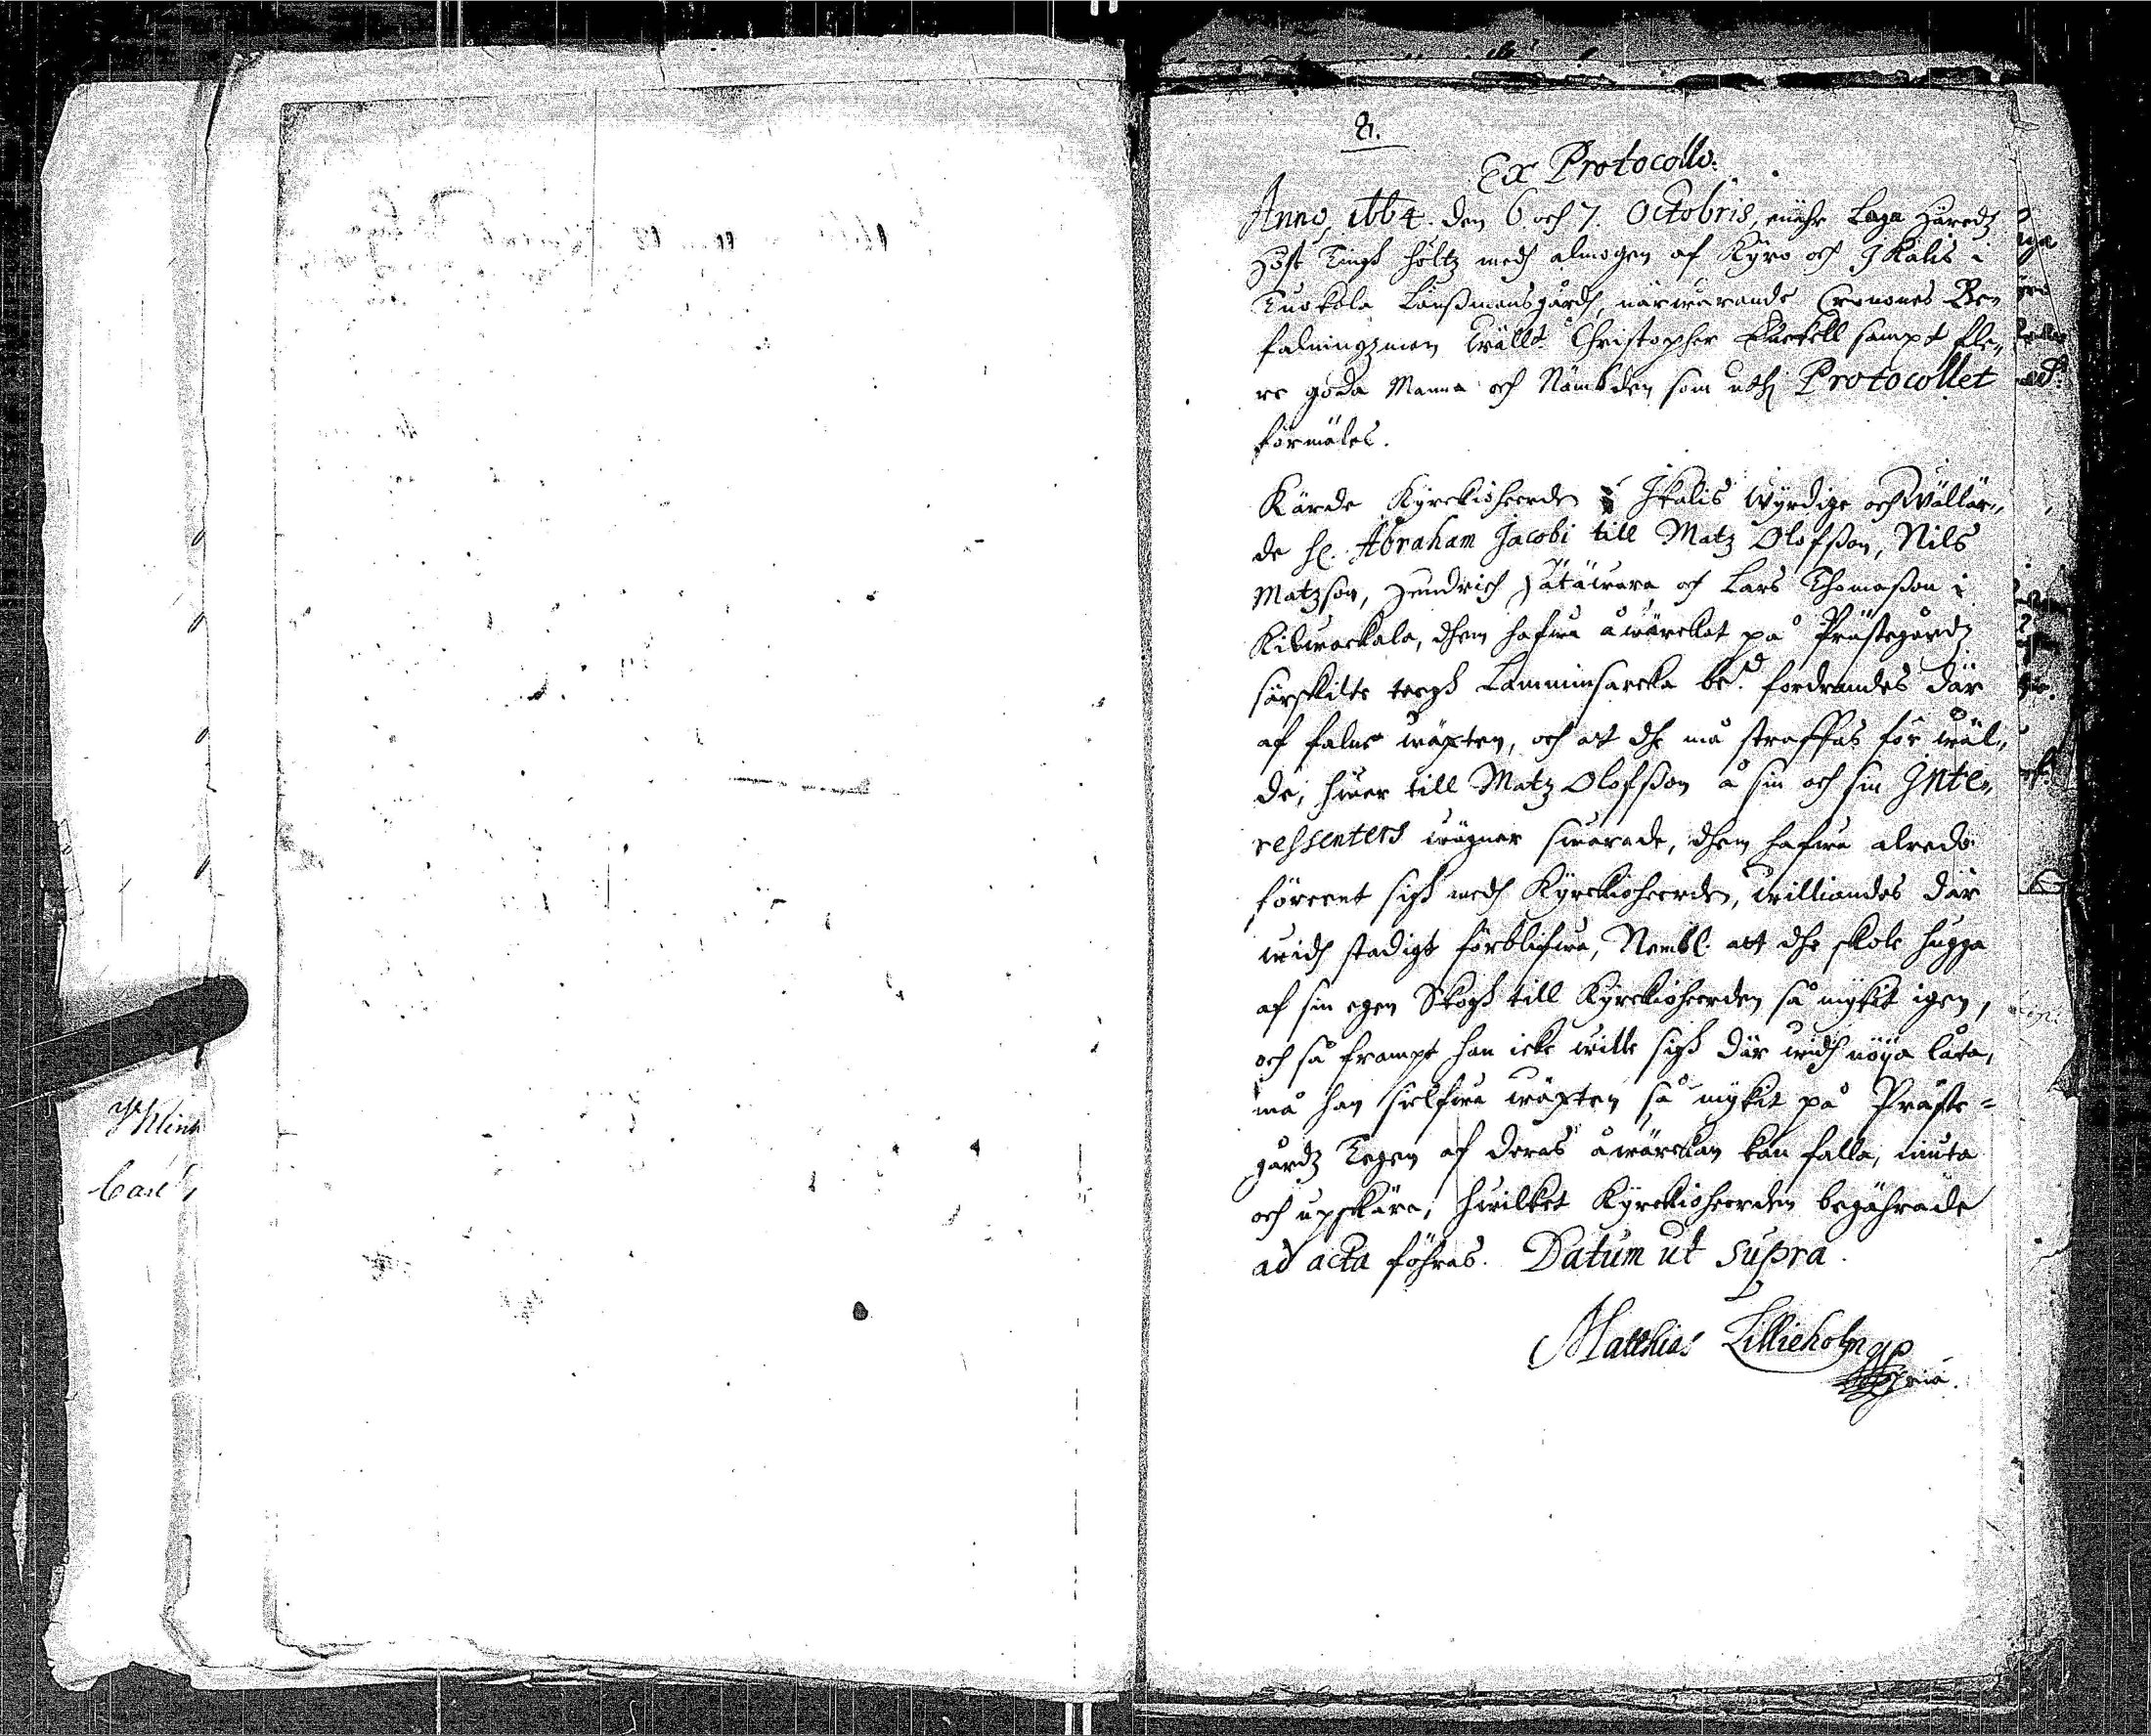 8.
Ex Protocollo.
Anno, 1664. den 6. och 7. Octobris, när Laga Häredz
Höst Tingh höltz medh almogen af Kyro och Ikalis i
Tuokola Länßmansgårdh, närwarande Cronones Be„
falningzman Wällt. Christopher sampt fle„
re goda Manna och Nämbden som uthj Protocollet
förmäles.
Kärde Kyrckioheerden i Ikalis Wyrdige och Wällär„
de H. Abraham Jacobi till Matz Olofßon, Nils
Matzson, Hendrich och Lars Thomaßon i
Kilwackala, dhem hafwa åwärckat på Prästegårdz
särskilte teegh Lamminsarcka be.d fordrandes där
af falne wäxten, och att dhe må straffas för wål„
de; hwar till Matz Olofßon å sin och sin Inte„
ressenters wägnar swarade, dhem hafwa alredo
föreent sigh medh Kyrckioheerden, williandes där
widh stadigt förblifwa, Nembl. att dhe skole hugga
af sin egen Skogh till Kyrckioheerden så mykit igen,
och så frampt han icke wille sigh där widh nöya låta,
må han sielfwa wäxten så mykit på Präste=
gårdz Tegen af deras åwärckan kan falla, niuta
och upskära; hwilket Kyrckioheerden begährade
ad acta föhras. Datum ut supra.
Matthias Lillieholm
Carl